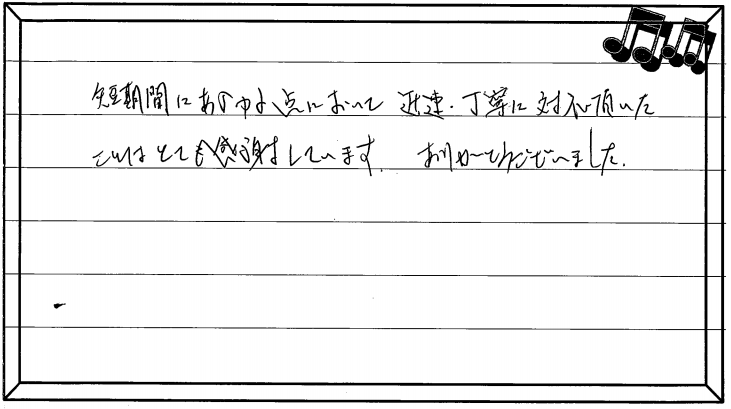 短期間にあらゆる点において 迅速・丁寧に対応頂いた
ことはとても感謝しています。 ありがとうございました.